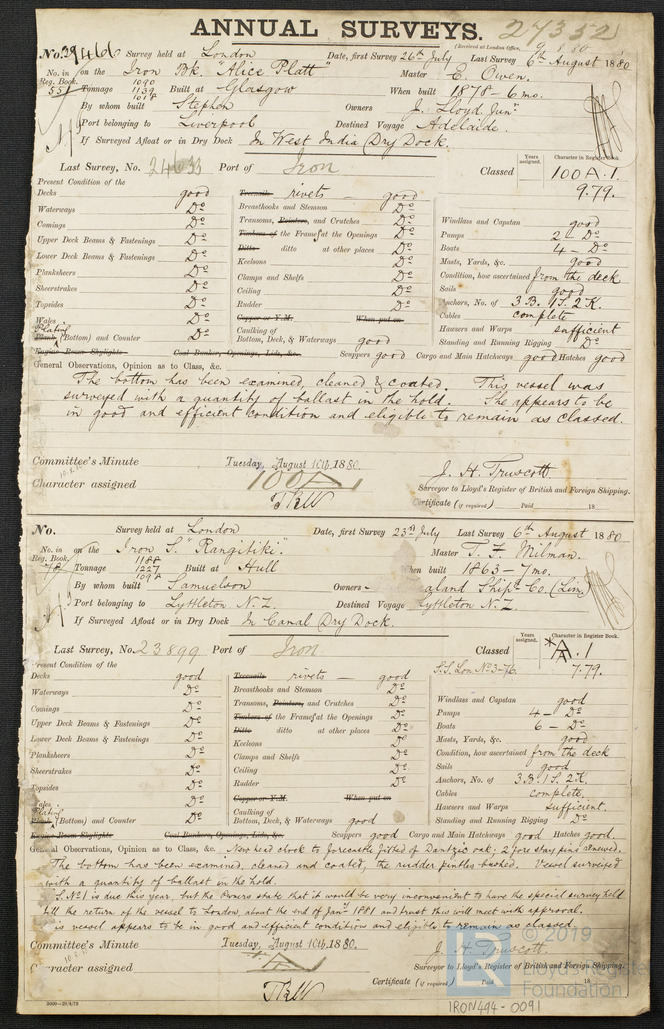 ANNUAL SURVEYS. 27352
(Received at London Office,
No. 39466 Survey held at London Date, first Survey 26th July Last Survey 6th August 1880
No. in Reg. Book. on the Iron Bk. "Alice Platt" Master E. Owen.
551 Tonnage 1090 1139 1018 Built at Glasgow When built 1878 - 6 mo.
By whom built Stephen Owners J. Lloyd Junr
Port belonging to Liverpool Destined Voyage Adelaide.
If Surveyed Afloat or in Dry Dock In West India Dry Dock.
Last Survey, No. 24633 Port of Iron Classed Years assigned. Character in Register Book. 100 A.1.
Present Condition of the 9.79.
Decks good Treenails rivets — good
Waterways Do Breasthooks and Stemson Do
Comings Do Transoms, Pointers, and Crutches Do Windlass and Capstan good
Upper Deck Beams & Fastenings Do Timbers of the Frames at the Openings Do Pumps 2 - Do
Lower Deck Beams & Fastenings Do Ditto ditto at other places Do Boats 4 - Do
Planksheers Do Keelsons Do Masts, Yards, &c. good
Sheerstrakes Do Clamps and Shelfs Do Condition, how ascertained from the deck
Topsides Do Ceiling Do Sails good
Wales Do Rudder Do Anchors, No. of 3 B. 1 S. 2 K.
Plating Plank (Bottom) and Counter Do Copper or Y.M. When put on Cables complete
Caulking of Bottom, Deck, & Waterways good Hawsers and Warps sufficient
Standing and Running Rigging Do
Engine Room Skylights Coal Bunker, Openings, Lids, &c. Scuppers good Cargo and Main Hatchways good Hatches good
General Observations, Opinion as to Class, &c.
The bottom has been examined, cleaned & coated. This vessel was
surveyed with a quantity of ballast in the hold. She appears to be
in good and efficient condition and eligible to remain as classed.
Committee's Minute Tuesday, August 10th, 1880.
Character assigned 100 A 1 J. H. Truscott.
Surveyor to Lloyd's Register of British and Foreign Shipping.
Certificate (if required) Paid 18
No. Survey held at London Date, first Survey 23rd July Last Survey 6th August 1880
No. in Reg. Book. on the Iron S. "Rangitiki". Master T. F. Milman.
78 Tonnage 1188 1227 1098 Built at Hull When built 1863 - 7 mo.
By whom built Samuelson Owners - aland Ship'g Co. (Lim.)
Port belonging to Lyttleton N.Z. Destined Voyage Lyttleton N.Z.
If Surveyed Afloat or in Dry Dock In Canal Dry Dock.
Last Survey, No. 23899 Port of Iron Classed Years assigned. Character in Register Book. A.1
Present Condition of the S.S. Lon No 3 - 76. 7.79.
Decks good Treenails rivets — good
Waterways Do Breasthooks and Stemson Do
Comings Do Transoms, Pointers, and Crutches Do Windlass and Capstan good
Upper Deck Beams & Fastenings Do Timbers of the Frames at the Openings Do Pumps 4 - Do
Lower Deck Beams & Fastenings Do Ditto ditto at other places Do Boats 6 - Do
Planksheers Do Keelsons Do Masts, Yards, &c. good
Sheerstrakes Do Clamps and Shelfs Do Condition, how ascertained from the deck
Topsides Do Ceiling Do Sails good
Wales Do Rudder Do Anchors, No. of 3 B. 1 S. 2 K.
Plating Plank (Bottom) and Counter Do Copper or Y.M. When put on Cables complete.
Caulking of Bottom, Deck, & Waterways good Hawsers and Warps sufficient.
Standing and Running Rigging Do
Engine Room Skylights Coal Bunkers, Openings, Lids, &c. Scuppers good Cargo and Main Hatchways good Hatches good.
General Observations, Opinion as to Class, &c. New head to forecastle fitted of Dantzic oak; 2 fore stay pins renewed.
The bottom has been examined, cleaned and coated, the rudder pintles bushed. Vessel surveyed
with a quantity of ballast in the hold.
S. No 1 is due this year, but the Owners state that it would be very inconvenient to have the special survey held
till the return of the vessel to London, about the end of Jany 1881 and trust this will meet with approval.
is vessel appears to be in good and efficient condition and eligible to remain as classed.
Committee's Minute Tuesday, August 10th, 1880.
Character assigned J. H. Truscott.
Surveyor to Lloyd's Register of British and Foreign Shipping.
Certificate (if required) Paid 18
3000—29/4/79
© 2019
Lloyd's Register
Foundation
IRON494-0091